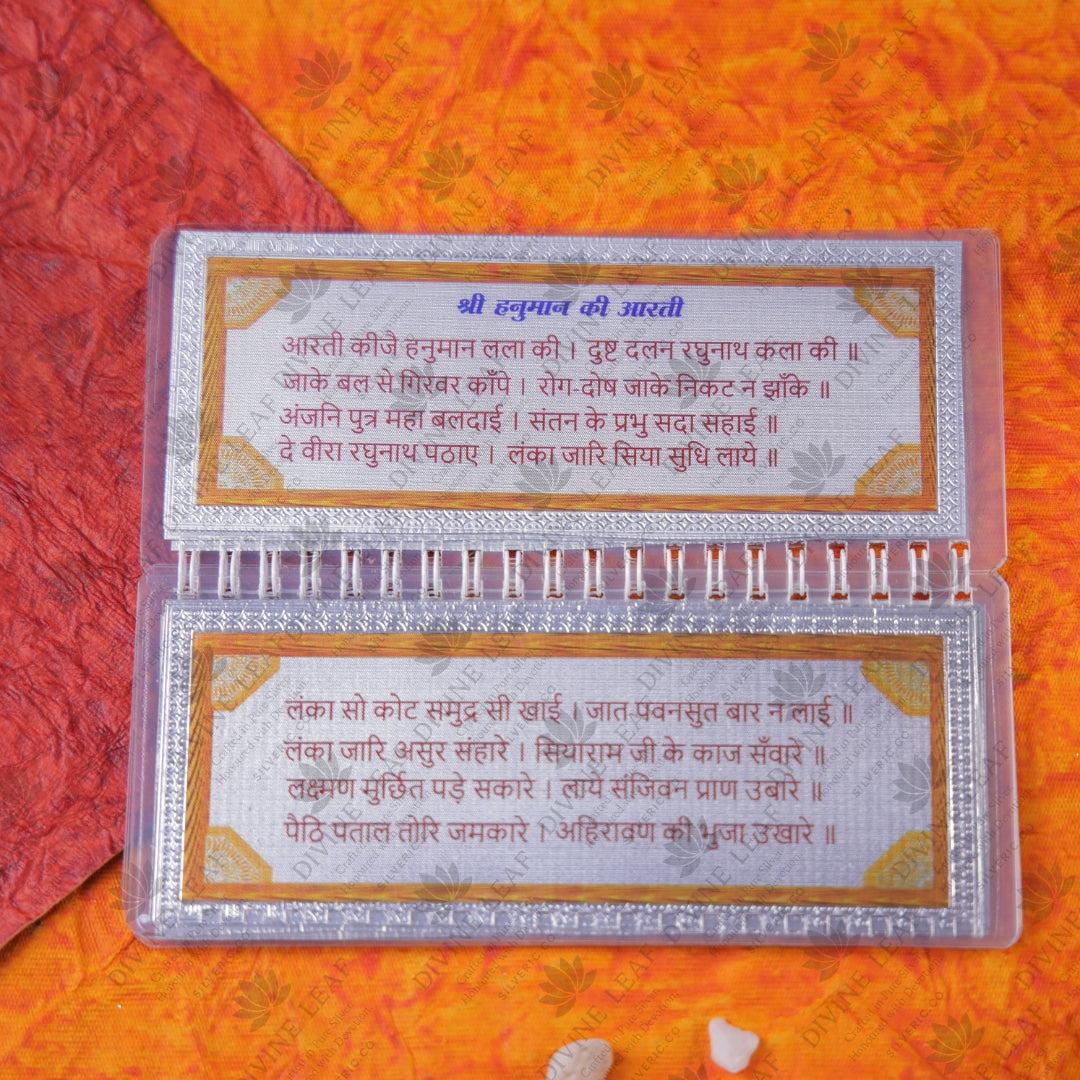 श्री हनुमान की आरती
आरती कीजै हनुमान लला की । दुष्ट दलन रघुनाथ कला की ॥
जाके बल से गिरवर काँपे । रोग-दोष जाके निकट न झाँके ॥
अंजनि पुत्र महा बलदाई । संतन के प्रभु सदा सहाई ॥
दे वीरा रघुनाथ पठाए । लंका जारि सिया सुधि लाये ॥
लंका सो कोट समुद्र सी खाई । जात पवनसुत बार न लाई ॥
लंका जारि असुर संहारे । सियाराम जी के काज सँवारे ॥
लक्ष्मण मुर्छित पड़े सकारे । लाये संजिवन प्राण उबारे ॥
पैठि पताल तोरि जमकारे । अहिरावण की भुजा उखारे ॥
DIVINE LEAF
Crafted in Pure Silver
Honoured with Devotion
SILVERIC.CO